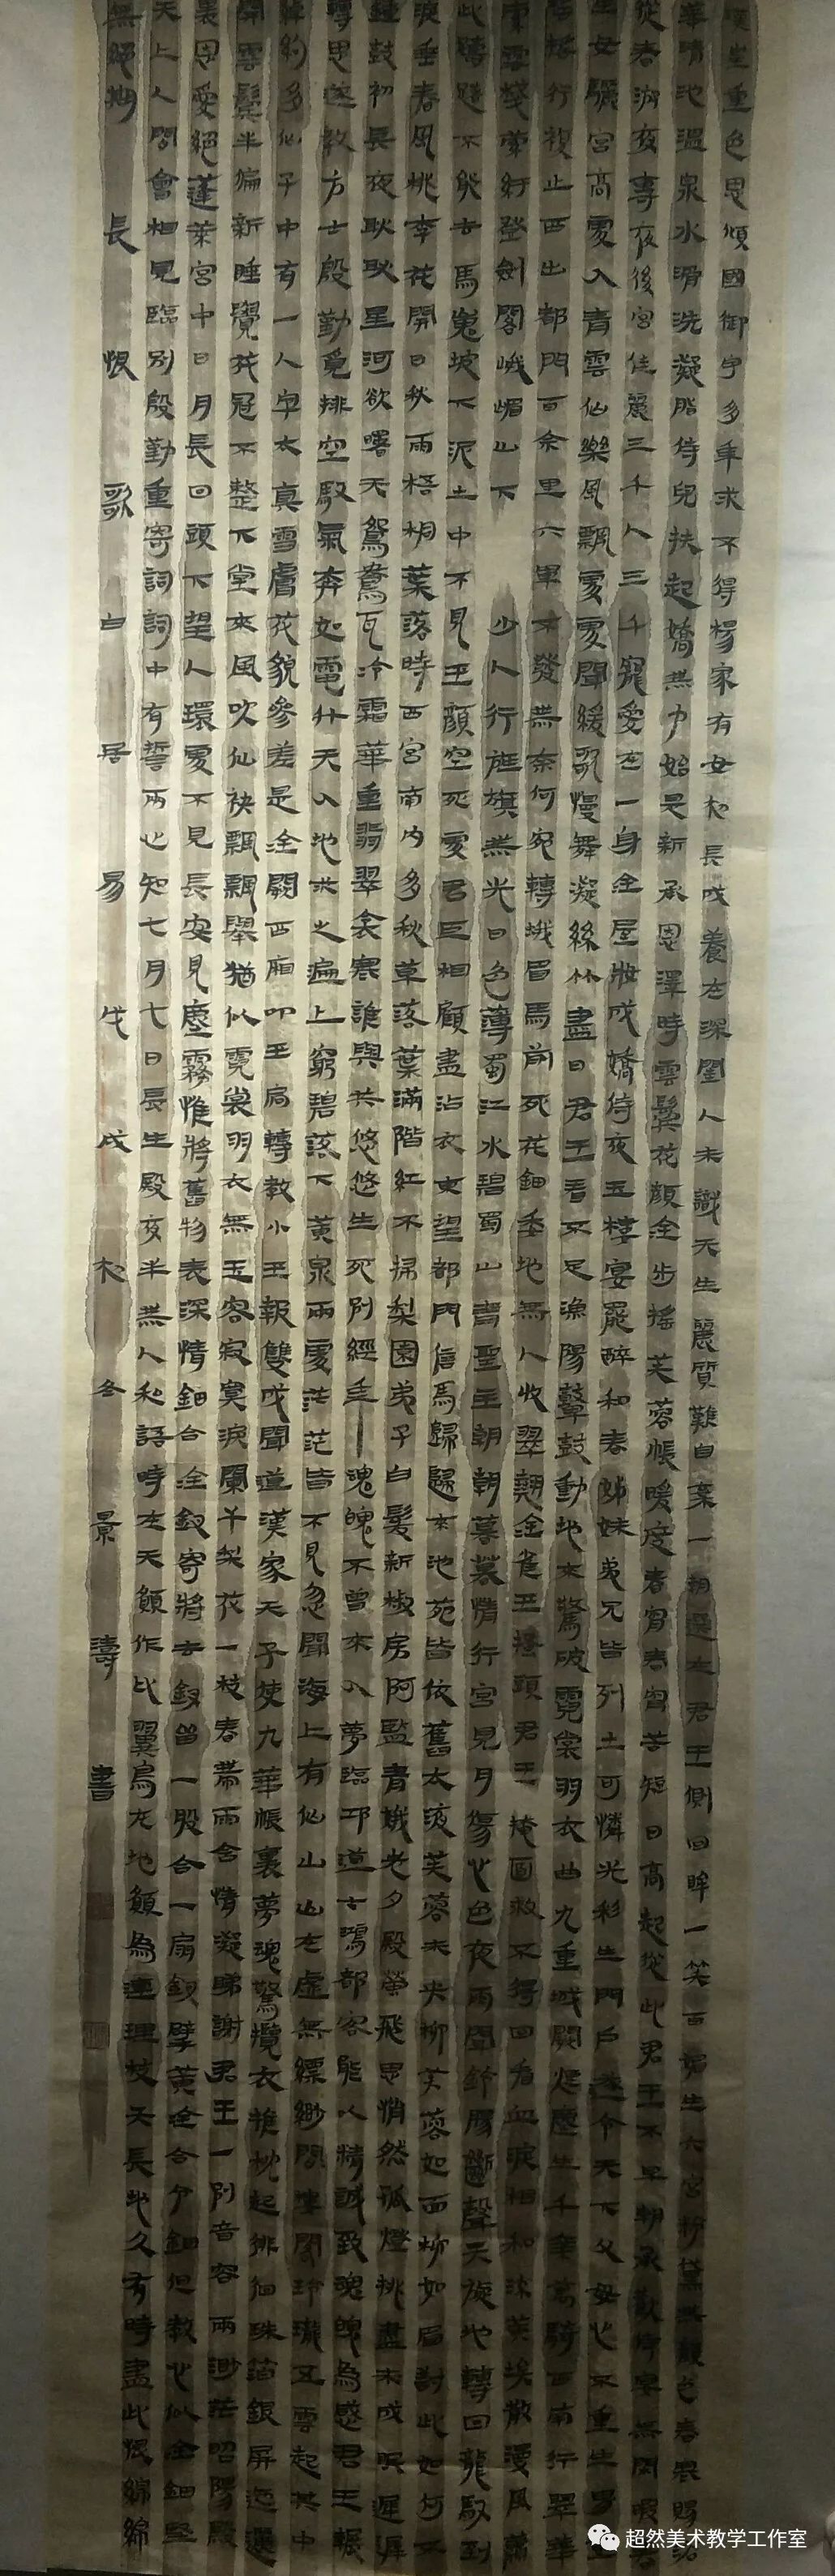 漢皇重色思傾國御宇多年求不得楊家有女初長成養在深閨人未識天生麗質難自棄一朝選在君王側回眸一笑百媚生六宮粉黛無顏色春寒賜浴
華清池溫泉水滑洗凝脂侍兒扶起嬌無力始是新承恩澤時雲鬢花顏金步搖芙蓉帳暖度春宵春宵苦短日高起從此君王不早朝承歡侍宴無閑暇春
從春游夜專夜後宮佳麗三千人三千寵愛在一身金屋妝成嬌侍夜玉樓宴罷醉和春姊妹弟兄皆列土可憐光彩生門戶遂令天下父母心不重生男重
生女驪宮高處入青雲仙樂風飄處處聞緩歌慢舞凝絲竹盡日君王看不足漁陽鼙鼓動地來驚破霓裳羽衣曲九重城闕煙塵生千乘萬騎西南行翠華
搖搖行複止西出都門百余里六軍不發無奈何宛轉娥眉馬前死花鈿委地無人收翠翹金雀玉搔頭君王掩面救不得回看血淚相和流黃埃散漫風蕭
索雲棧縈紆登劍閣峨嵋山下少人行旌旗無光日色薄蜀江水碧蜀山青聖主朝朝暮暮情行宮見月傷心色夜雨聞鈴腸斷聲天旋地轉回龍馭到
此躊躇不能去馬嵬坡下泥土中不見玉顏空死處君臣相顧盡沾衣東望都門信馬歸歸來池苑皆依舊太液芙蓉未央柳芙蓉如面柳如眉對此如何不
淚垂春風桃李花開日秋雨梧桐葉落時西宮南內多秋草落葉滿階紅不掃梨園弟子白髮新椒房阿監青娥老夕殿螢飛思悄然孤燈挑盡未成眠遲遲
鐘鼓初長夜耿耿星河欲曙天鴛鴦瓦冷霜華重翡翠衾寒誰與共悠悠生死別經年魂魄不曾來入夢臨邛道士鴻都客能以精誠致魂魄為感君王輾
轉思遂教方士殷勤覓排空馭氣奔如電升天入地求之遍上窮碧落下黃泉兩處茫茫皆不見忽聞海上有仙山山在虛無縹緲間樓閣玲瓏五雲起其中
綽約多仙子中有一人字太真雪膚花貌參差是金闕西廂叩玉扃轉教小玉報雙成聞道漢家天子使九華帳裏夢魂驚攬衣推枕起徘徊珠箔銀屏迤邐
開雲鬢半偏新睡覺花冠不整下堂來風吹仙袂飄飄舉猶似霓裳羽衣舞玉容寂寞淚闌干梨花一枝春帶雨含情凝睇謝君王一別音容兩渺茫昭陽殿
裏恩愛絕蓬萊宮中日月長回頭下望人環處不見長安見塵霧惟將舊物表深情鈿合金釵寄將去釵留一股合一扇釵擘黃金合分鈿但教心似金鈿堅
天上人間會相見臨別殷勤重寄詞詞中有誓兩心知七月七日長生殿夜半無人私語時在天願作比翼鳥在地願為連理枝天長地久有時盡此恨綿綿
無絕期 長恨歌 白居易 戊戌初冬 景濤書
超然美术教学工作室